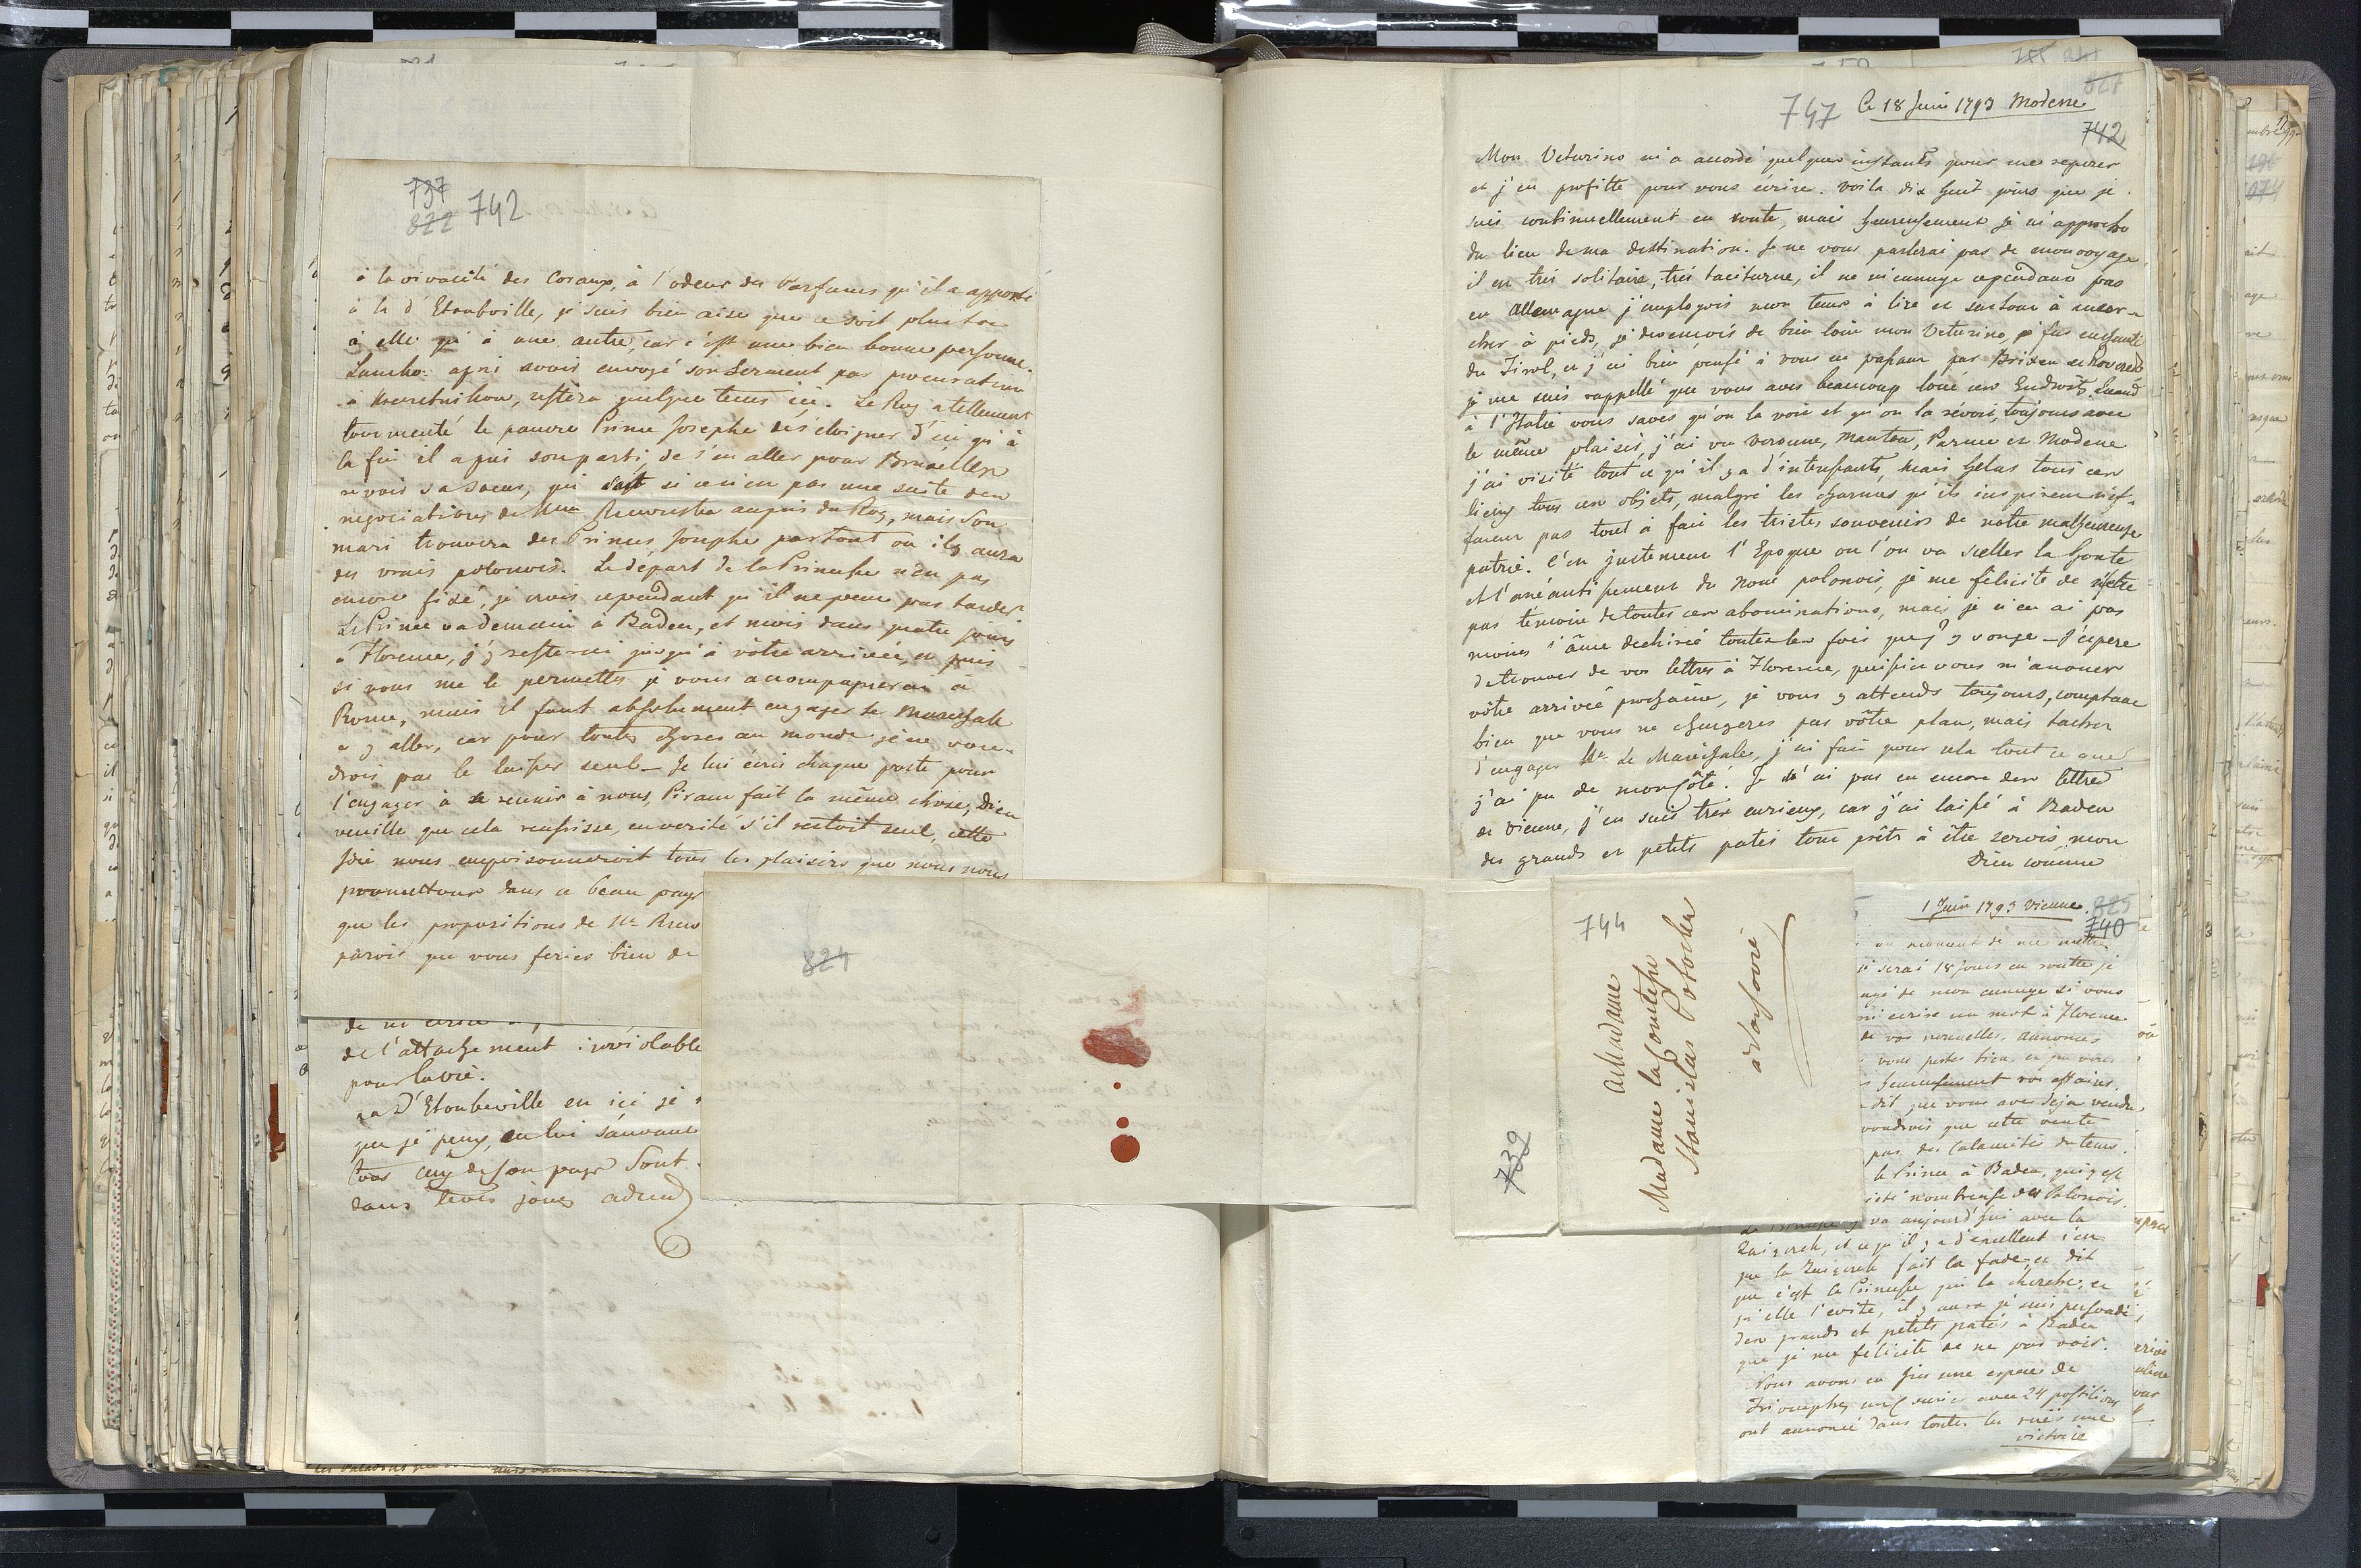 737
822 742
à la vivacité des Coraux, à l'odeur des Parfums qu'il a apporté
à la d'Etoubville, je suis bien aise que ce soit plustot
à elle qu'à une autre, car c'est une bien bonne personne.
Sancho: apres avoir envoyé son serment par procuration
a restera quelque tems ici. Le Roy a tellement
tourmenté le pauvre Prince Josephe de s'éloigner d'ici qu'à
la fin il a pris son parti, de s'en aller pour Bruxelles
revoir sa soeur, qui sait si ceci n'en pas une suite des
negociations de Mme Rzewuska aupris du Roy, mais son
mari trouvera des Princes Josephe partout ou il y aura
des vrais polonois. Le départ de la Princesse n'en pas
encore fixé, je crois cependant qu'il ne peut pas tarder
Le Prince va demain à Baden, et mois dans quatre jours
a Florence, j'y resterai jusqu'à vôtre arrivée, et puis
si vous me le permettes je vous accompagnerai à
Rome, mais il faut absolument engager le Marechale
a y aller, car pour toutes choses au monde je ne vou-
drois pas le laisser seul_ Je lui écris chaque poste pour
l'engager à se reunir à nous, Piram fait la même chose, Dieu
veuille que cela reussisse, en verité s'il restoit seul, cette
idée nous empoisonneroit tous les plaisirs que nous nous
promettons dans ce beau pays
que les propositions de Me Rzew
parois que vous feries bien de
de l'attachement inviolable
pour la vie.
La D'Etoubeville en ici je
que je peux, en lui
tous ceux de son pays sont
dans trois jours adieu
824
747 Ce 18 Juin 1793 Modene
742
Mon Veturino m'a accordé quelques instants pour me reposer
et j'en profitte pour vous écrire. voila dix huit jours que je
suis continuellement en route, mais heureusement je m'approche
du lieu de ma destination. Je ne vous parlerai pas de mon voyage,
il en très solitaire, très taciturne, il ne m'ennuye cependant pas
en Allemagne j'employois mon tems à lire et surtout à mar-
cher à pieds, je devencois de bien loin mon Veturino, je fus enchanté
du Tirol, et j'ai bien pensé à vous en passant par Brixen et Roveredo
je me suis rappellé que vous aves beaucoup loué ces Endroits. Quand
à l'Italie vous saves qu'on la voie et qu'on la révoit, toujours avec
le même plaisir, j'ai vu Veronne, Mantou, Parme et Modene
j'ai visité tout ce qu'il y a d'interessants, mais helas tous ces
lieux tous ces objets, malgré les charmes qu'ils inspirent n'ef-
facent pas tout à fait les tristes souvenirs de notre malheureuse
patrie. C'en justement l'Epoque ou l'on va sceller la honte
et l'anéantissement du nom polonois, je me félicite de n'être
pas témoin de toutes ces abominations, mais je n'en ai pas
moins l'âme dechirée toutes les fois que j'y songe_ J'espere
de trouver de vos lettres à Florence, puissiez vous m'anoncer
vôtre arrivée prochaine, je vous y attends toujours, comptant
bien que vous ne changeres pas vôtre plan, mais tachez
d'engager Mr. Le Marechale, j'ai fait pour cela tout ce que
j'ai pu de mon côté. Je n'ai pas eu encore des lettres
de Vienne, j'en suis très curieux, car j'ai laissé à Baden
des grands et petits patés tous prêts à être servis, mon
Dieu comme
744
739
à Madame
Madame la Comtesse
Stanislas Potocka
à Varsovie
1 Juin 1793 Vienne. 825
740
au moment de me mettre
je serai 18 jours en route je
de mon ennuye si vous
m'ecrire un mot à Florence
de vos nouvelles, annonces
vous portes bien, et que vous
heureusement vos affaires.
dit que vous aves deja vendu
voudrois que cette vente
pas des Calamités du tems.
le Prince à Baden, qui y est
nombreuse des Polonois.
La Princesse y va aujourd'hui avec la
et ce qu'il y a d'excellent c'en
que la fait la fade, et dit
que c'est la Princesse qui la cherche, et
qu'elle l'evite, il y aura je suis persuadé
des grands et petits patés à Baden
que je me felicite de ne pas voir.
Nous avons eu hier une especes de
Triomphe, un Courier avec 24 postilions
ont annoncé dans toutes les rues une
victoire